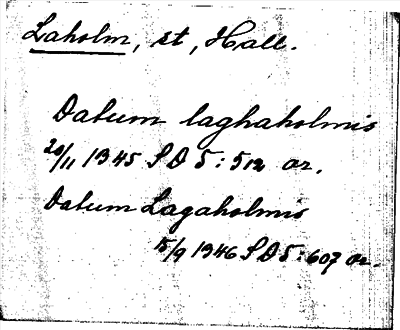 Laholm, st, Hall.
Datum laghaholmis
20/11 1345 SD 5: 512 or.
Datum Lagaholmis
15/9 1346 SD 5: 607 or.